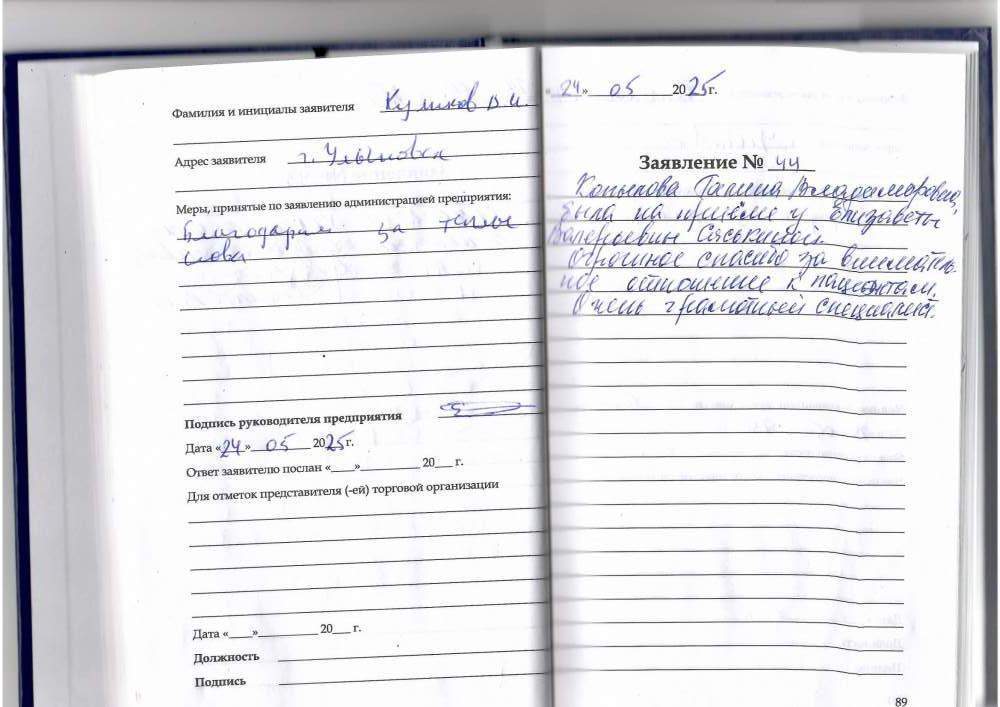 Фамилия и инициалы заявителя Куликов В И.
Адрес заявителя г. Ульяновск
Меры, принятые по заявлению администрацией предприятия:
Благодарим за теплые
слова
Подпись руководителя предприятия
Дата «24» 05 2025г.
Ответ заявителю послан «___»__________ 20___ г.
Для отметок представителя (-ей) торговой организации
Дата «____»__________ 20___ г.
Должность
Подпись
«24» 05 2025г.
Заявление № 44
Копылова Галина Владимировна,
была на приёме у Елизаветы
Валерьевны Сяськиной.
Огромное спасибо за вниматель-
ное отношение к пациентам.
Очень грамотный специалист.
89